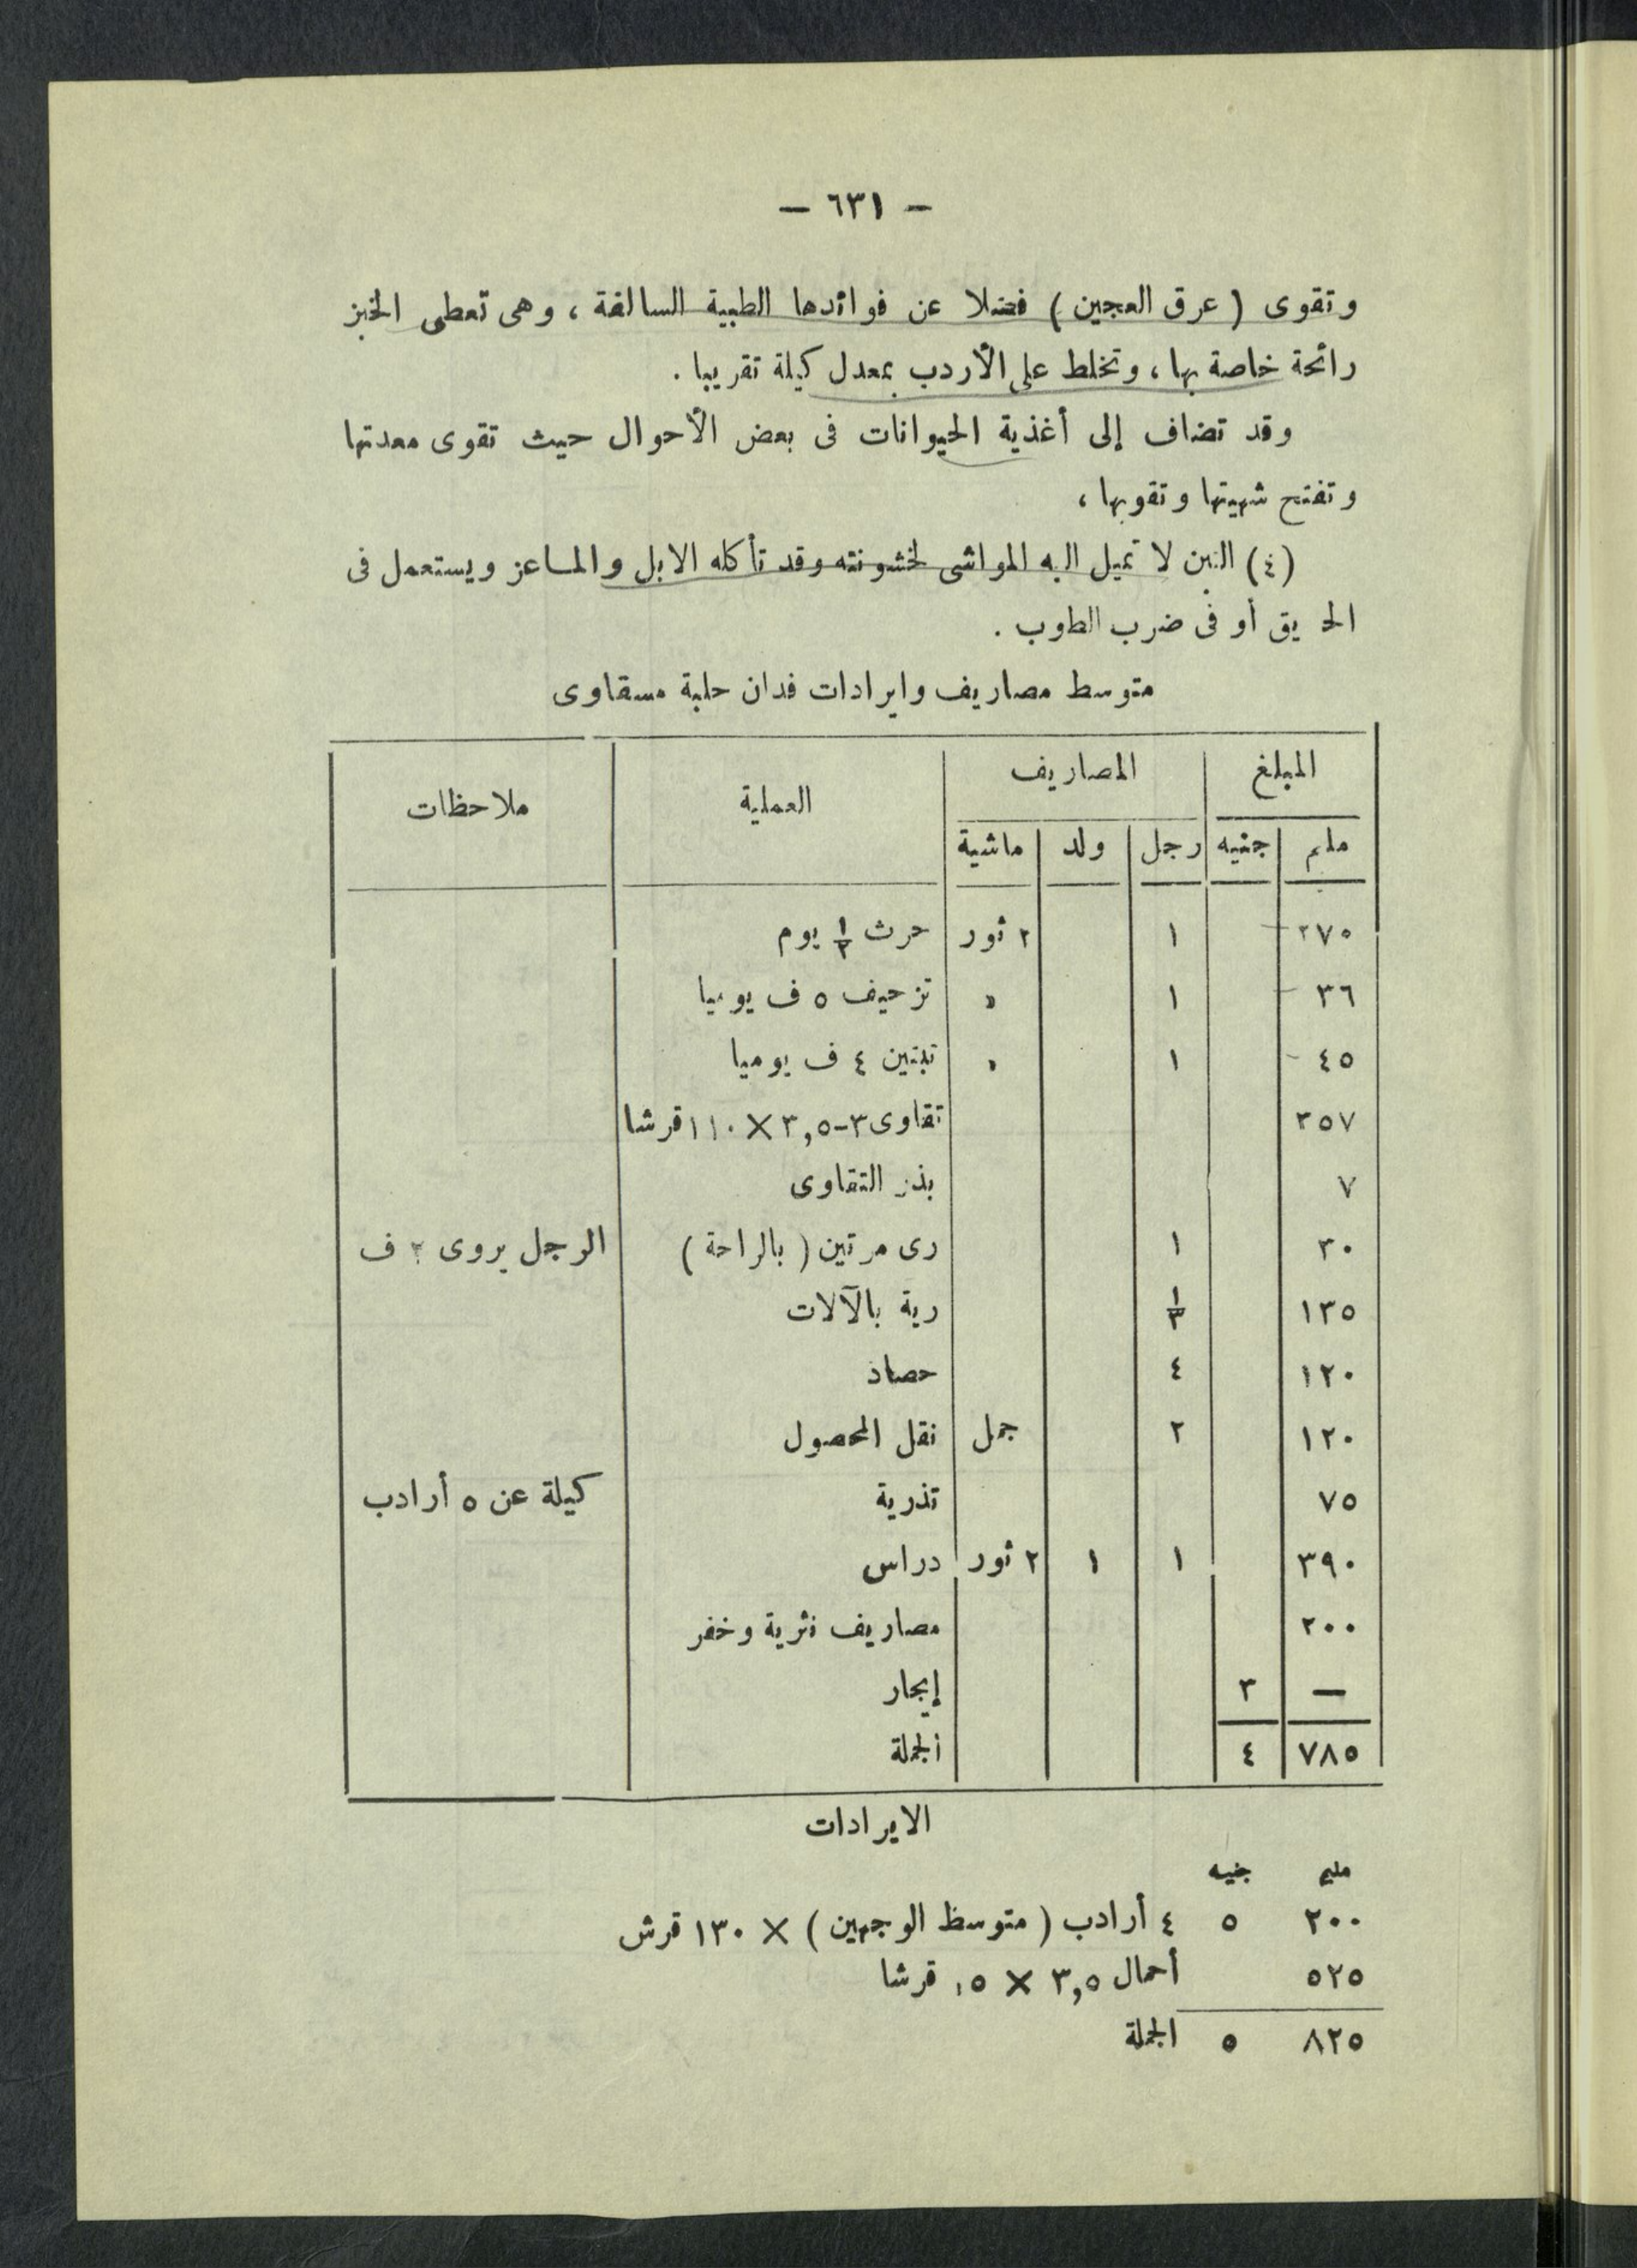 — ٦٣١ —
وتقوى ( عرق العجين ) فضلا عن فوائدها الطبية السالفة ، وهى تعطى الخبز
رائحة خاصة بها ، وتخلط على الأردب بمعدل كيلة تقريبا .
وقد تضاف إلى أغذية الحيوانات فى بعض الأحوال حيث تقوى معدتها
وتفتح شهيتها وتقويها ،
(٤) التبن لا تميل اليه المواشى لخشونته وقد تأكله الابل والماعز ويستعمل فى
الحريق أو فى ضرب الطوب .
متوسط مصاريف وايرادات فدان حلبة مسقاوى
المبلغ المصاريف العملية ملاحظات
مليم جنيه رجل ولد ماشية
٢٧٠ ١ ٢ ثور حرث ١/٢ يوم
٣٦ ١ » تزحيف ٥ ف يوميا
٤٥ ١ » تبتين ٤ ف يوميا
٣٥٧ تقاوى ٣-٣,٥ × ١١٠ قرشا
٧ بذر التقاوى
٣٠ ١ رى مرتين ( بالراحة ) الرجل يروى ف
١٣٥ ١/٣ رية بالآلات
١٢٠ ٤ حصاد
١٢٠ ٢ جمل نقل المحصول
٧٥ تذرية كيلة عن ٥ أرادب
٣٩٠ ١ ١ ٢ ثور دراس
٢٠٠ مصاريف نثرية وخفر
— ٣ إيجار
٧٨٥ ٤ الجملة
الايرادات
مليم جنيه
٢٠٠ ٥ ٤ أرادب ( متوسط الوجهين ) × ١٣٠ قرش
٥٢٥ أحمال ٣,٥ × ١٥ قرشا
٨٢٥ ٥ الجملة